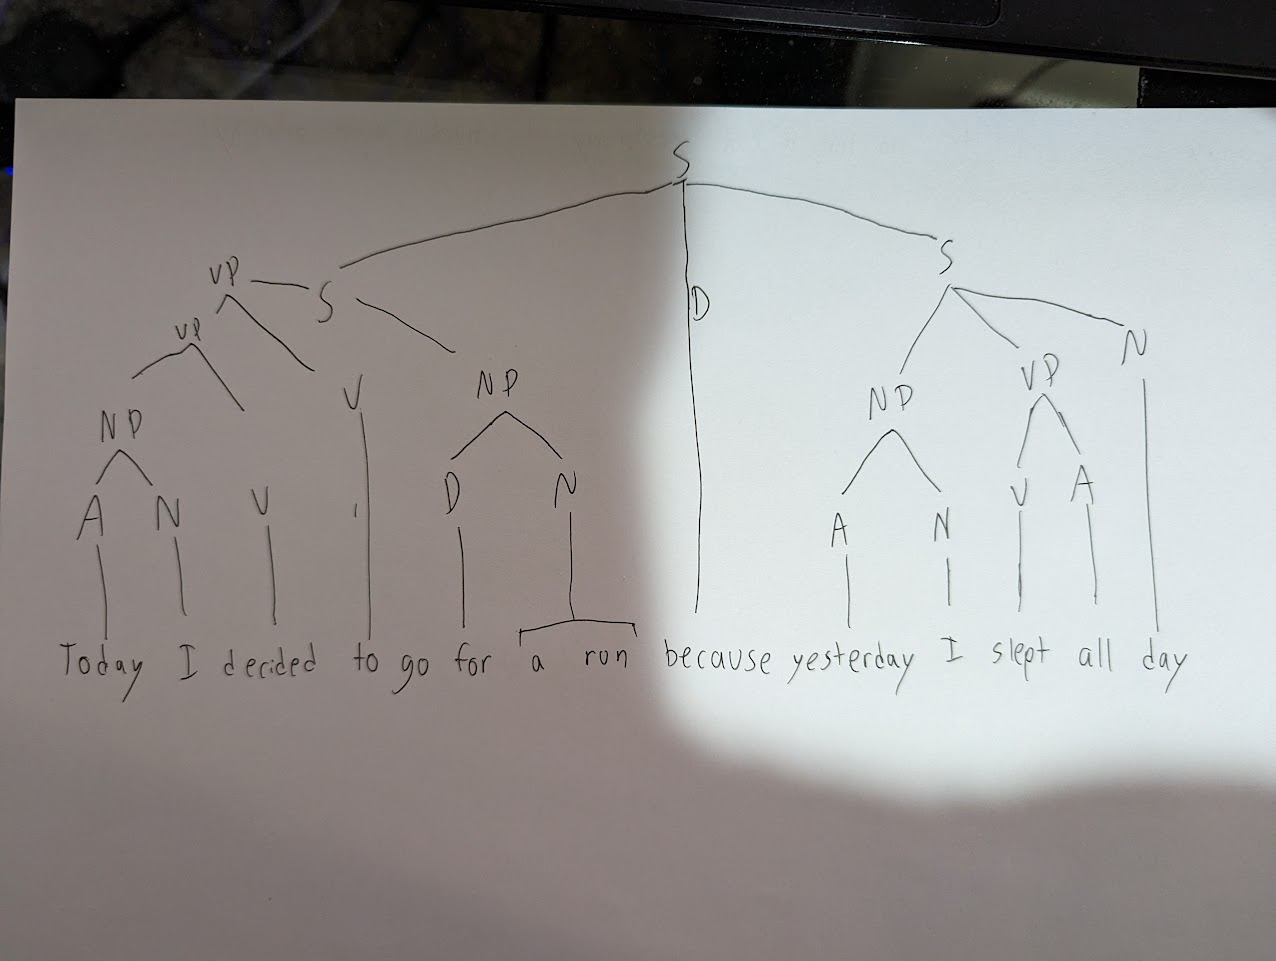 S
VP S S
VP D N
V NP NP VP
NP D N V A
A N V A N
Today I decided to go for a run because yesterday I slept all day